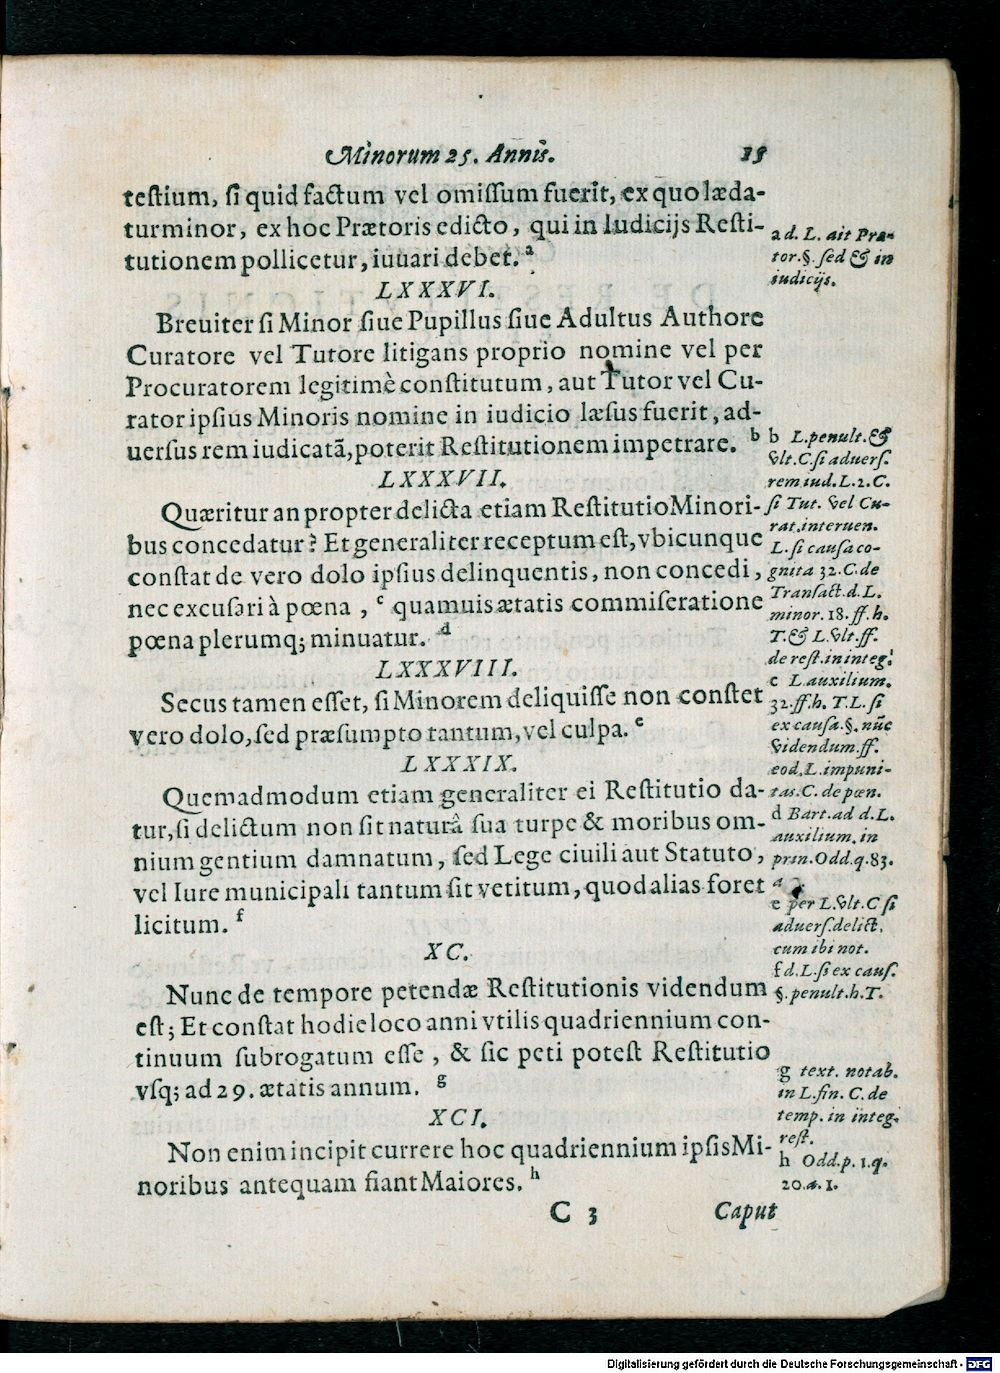 Minorum 25. Annis. 15
testium, si quid factum vel omissum fuerit, ex quo læda-
tur minor, ex hoc Prætoris edicto, qui in Iudicijs Resti-
tutionem pollicetur, iuuari debet. a
LXXXVI.
Breuiter si Minor siue Pupillus siue Adultus Authore
Curatore vel Tutore litigans proprio nomine vel per
Procuratorem legitimè constitutum, aut Tutor vel Cu-
rator ipsius Minoris nomine in iudicio læsus fuerit, ad-
uersus rem iudicatã, poterit Restitutionem impetrare. b
LXXXVII.
Quæritur an propter delicta etiam Restitutio Minori-
bus concedatur? Et generaliter receptum est, vbicunque
constat de vero dolo ipsius delinquentis, non concedi,
nec excusari à pœna, c quamuis ætatis commiseratione
pœna plerumq; minuatur. d
LXXXVIII.
Secus tamen esset, si Minorem deliquisse non constet
vero dolo, sed præsumpto tantum, vel culpa. e
LXXXIX.
Quemadmodum etiam generaliter ei Restitutio da-
tur, si delictum non sit naturâ sua turpe & moribus om-
nium gentium damnatum, sed Lege ciuili aut Statuto,
vel Iure municipali tantum sit vetitum, quod alias foret
licitum. f
XC.
Nunc de tempore petendæ Restitutionis videndum
est; Et constat hodie loco anni vtilis quadriennium con-
tinuum subrogatum esse, & sic peti potest Restitutio
vsq; ad 29. ætatis annum. g
XCI.
Non enim incipit currere hoc quadriennium ipsis Mi-
noribus antequam fiant Maiores. h
C 3 Caput
a d. L. ait Præ-
tor. §. sed & in
iudicijs.
b L. penult. &
vlt. C. si aduers.
rem iud. L. 2. C.
si Tut. vel Cu-
rat. interuen.
L. si causa co-
gnita 32. C. de
Transact. d. L.
minor. 18. ff. h.
T. & L. vlt. ff.
de rest. in integ.
c L. auxilium.
32. ff. h. T. L. si
ex causa. §. nũc
videndum. ff.
eod. L. impuni-
tas. C. de pœn.
d Bart. ad d. L.
auxilium, in
prin. Odd. q. 83.
a
e per L. vlt. C si
aduers. delict.
cum ibi not.
f d. L. si ex caus.
§. penult. h. T.
g text. notab.
in L. fin. C. de
temp. in integ.
rest.
h Odd. p. 1. q.
20. a. 1.
Digitalisierung gefördert durch die Deutsche Forschungsgemeinschaft - DFG